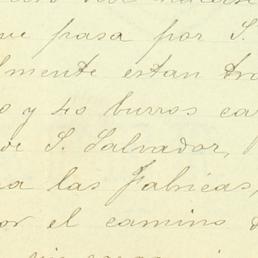 ue pasa por S.
lmente estan tra
o y 40 burros ca
de S. Salvador,
na las Fabricas,
or el camino d